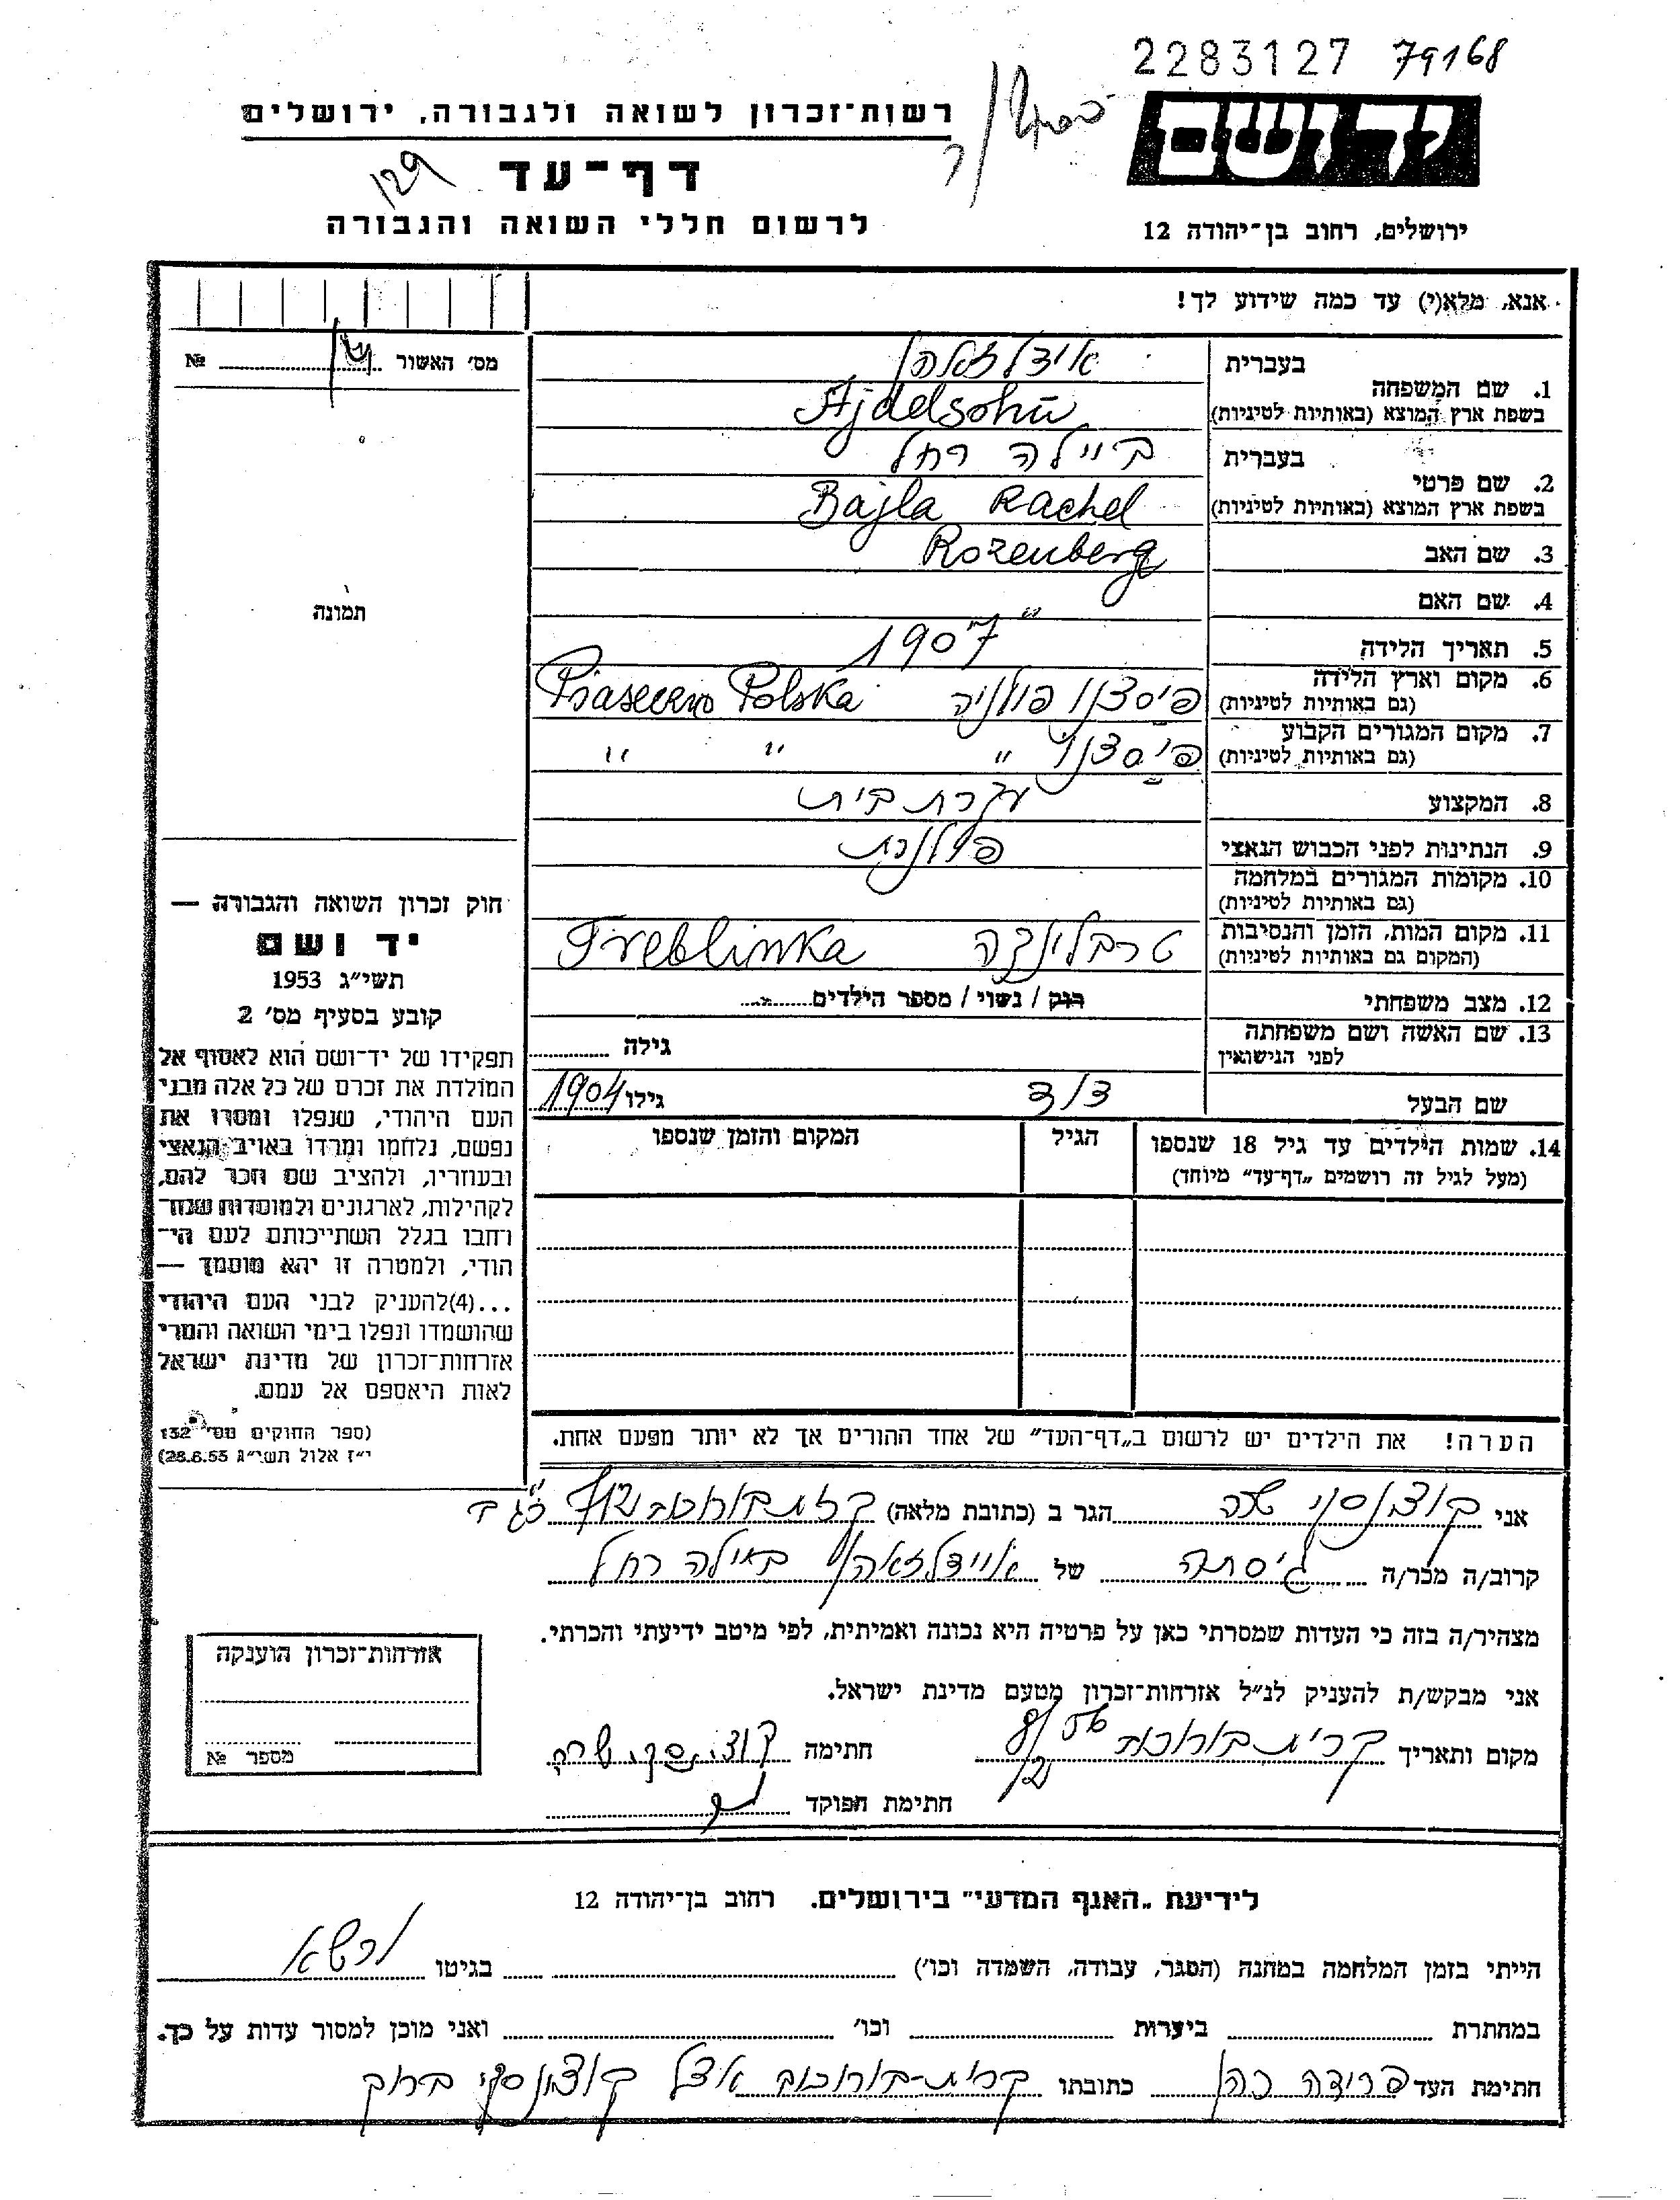 2283127 79168
יד ושם
רשות־זכרון לשואה ולגבורה, ירושלים
דף־עד
129
לרשום חללי השואה והגבורה
ירושלים, רחוב בן־יהודה 12
אנא, מלא(י) עד כמה שידוע לך!
מס׳ האשור № 
בעברית
1. שם המשפחה
בשפת ארץ המוצא (באותיות לטיניות) Ajdelsohn
בעברית ביילה רחל
2. שם פרטי
בשפת ארץ המוצא (באותיות לטיניות) Bajla Rachel
3. שם האב Rozenberg
4. שם האם
5. תאריך הלידה 1907
6. מקום וארץ הלידה פיסצנו פולניה Piaseczno Polska
(גם באותיות לטיניות)
7. מקום המגורים הקבוע פיסצנו " " "
(גם באותיות לטיניות)
8. המקצוע עקרת בית
9. הנתינות לפני הכבוש הנאצי פולנית
10. מקומות המגורים במלחמה
(גם באותיות לטיניות)
11. מקום המות, הזמן והנסיבות טרבלינקה Treblinka
(המקום גם באותיות לטיניות)
12. מצב משפחתי רוק / נשוי / מספר הילדים
13. שם האשה ושם משפחתה
לפני הנישואין גילה
שם הבעל דוד גילו 1904
14. שמות הילדים עד גיל 18 שנספו הגיל המקום והזמן שנספו
(מעל לגיל זה רושמים „דף־עד” מיוחד)
הערה! את הילדים יש לרשום ב„דף־העד” של אחד ההורים אך לא יותר מפעם אחת.
תמונה
חוק זכרון השואה והגבורה —
יד ושם
תשי״ג 1953
קובע בסעיף מס׳ 2
תפקידו של יד־ושם הוא לאסוף אל
המולדת את זכרם של כל אלה מבני
העם היהודי, שנפלו ומסרו את
נפשם, נלחמו ומרדו באויב הנאצי
ובעוזריו, ולהציב שם וזכר להם,
לקהילות, לארגונים ולמוסדות שנח־
רחבו בגלל השתייכותם לעם הי־
הודי, ולמטרה זו יהא מוסמך —
...(4)להעניק לבני העם היהודי
שהושמדו ונפלו בימי השואה והמרי
אזרחות־זכרון של מדינת ישראל
לאות היאספם אל עמם.
(ספר החוקים מס׳ 132
י״ז אלול תשי״ג 28.8.53)
אני קוצינסקי שרה הגר ב (כתובת מלאה)
קרוב/ה מכר/ה גיסתה של ביילה רחל
מצהיר/ה בזה כי העדות שמסרתי כאן על פרטיה היא נכונה ואמיתית, לפי מיטב ידיעתי והכרתי.
אני מבקש/ת להעניק לנ״ל אזרחות־זכרון מטעם מדינת ישראל.
מקום ותאריך חתימה קוצינסקי שרה
חתימת הפוקד
אזרחות־זכרון הוענקה
מספר №
לידיעת „האגף המדעי” בירושלים. רחוב בן־יהודה 12
הייתי בזמן המלחמה במחנה (הסגר, עבודה, השמדה וכו׳) בגיטו ורשא
במחתרת ביערות וכו׳ ואני מוכן למסור עדות על כך.
חתימת העד פרידה כהן כתובתו אצל קוצינסקי ברוך